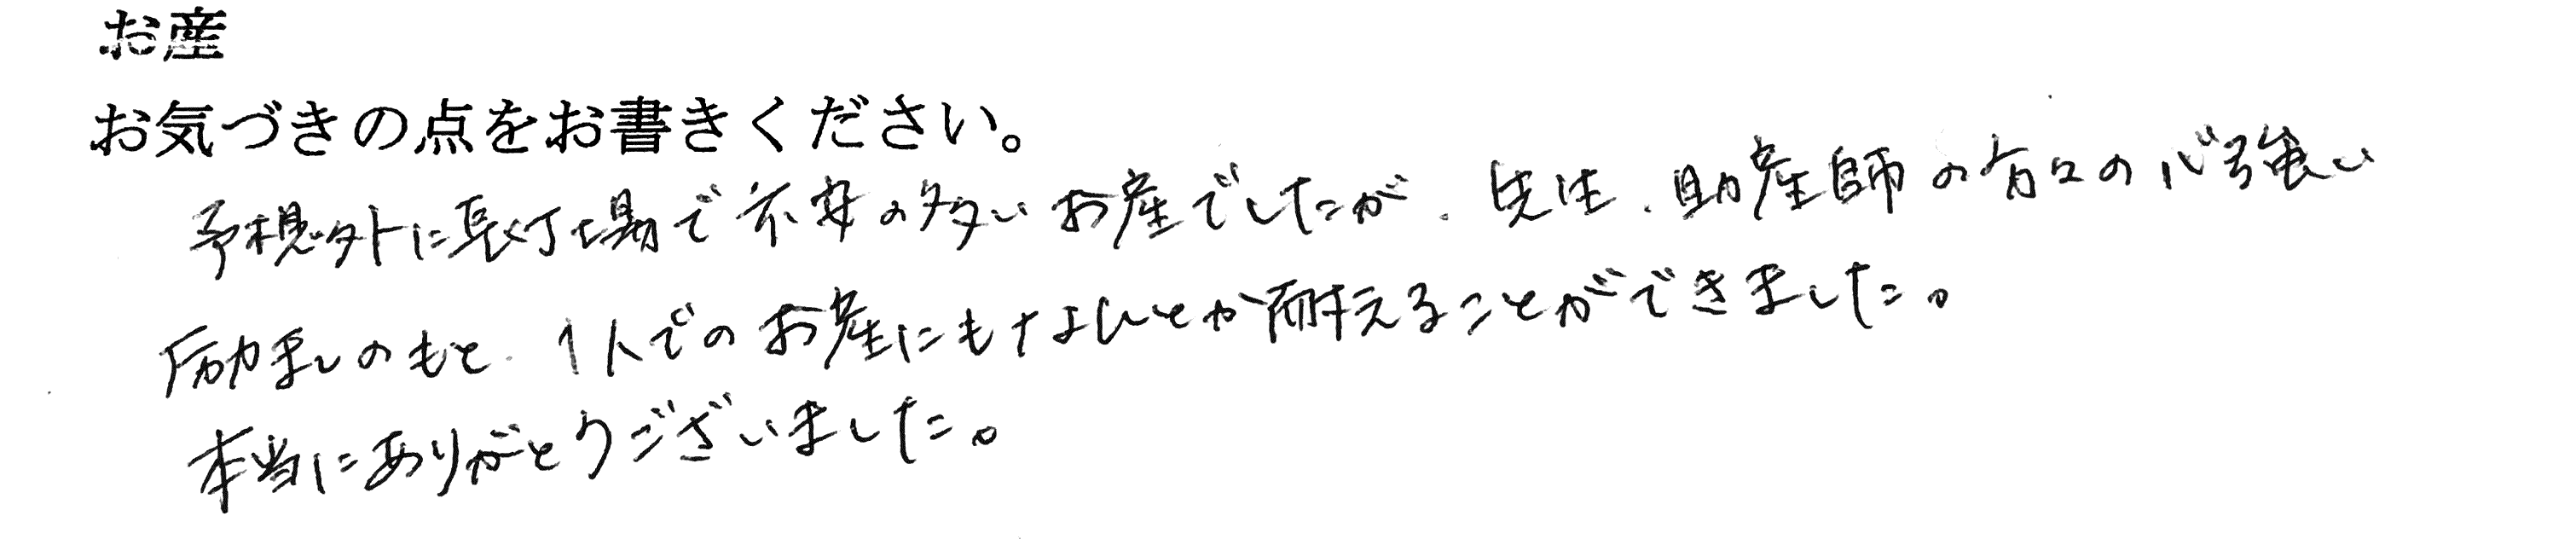 お産
お気づきの点をお書きください。
予想外に長丁場で不安の多いお産でしたが、先生、助産師の方々の心強い
励ましのもと、1人でのお産にもなんとか耐えることができました。
本当にありがとうございました。